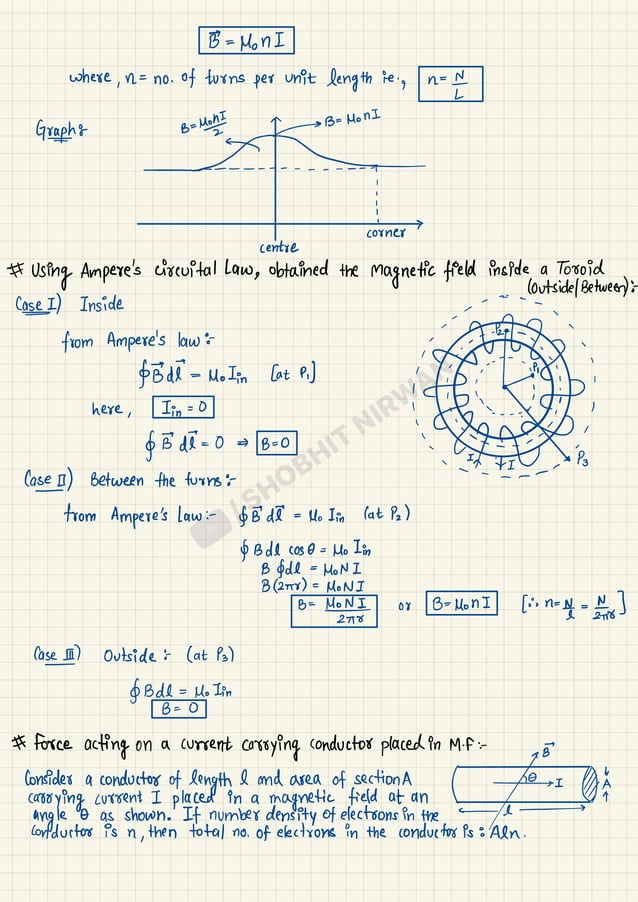 B⃗ = μ₀nI
where, n = no. of turns per unit length ie., n = N/L
Graph:-
B = μ₀nI/2
B = μ₀nI
corner
centre
# Using Ampere's circuital Law, obtained the magnetic field inside a Toroid
(Outside/Between):-
Case I) Inside
from Ampere's law:-
∮B⃗ dl⃗ = μ₀ Iin [at P₁]
here, Iin = 0
∮ B⃗ dl⃗ = 0 ⇒ B = 0
P₂
P₁
I
I
P₃
Case II) Between the turns:-
from Ampere's Law:- ∮B⃗ dl⃗ = μ₀ Iin (at P₂)
∮ Bdl cosθ = μ₀ Iin
B ∮dl = μ₀NI
B(2πr) = μ₀NI
B = μ₀NI/2πr or B = μ₀nI [∴ n = N/l = N/2πr]
Case III) Outside:- (at P₃)
∮Bdl = μ₀ Iin
B = 0
# Force acting on a current carrying conductor placed in M.F:-
Consider a conductor of length l and area of section A
carrying current I placed in a magnetic field at an
angle θ as shown. If number density of electrons in the
conductor is n, then total no. of electrons in the conductor is: Aln.
B⃗
θ
I
A
l
/ SHOBHIT NIRWAN